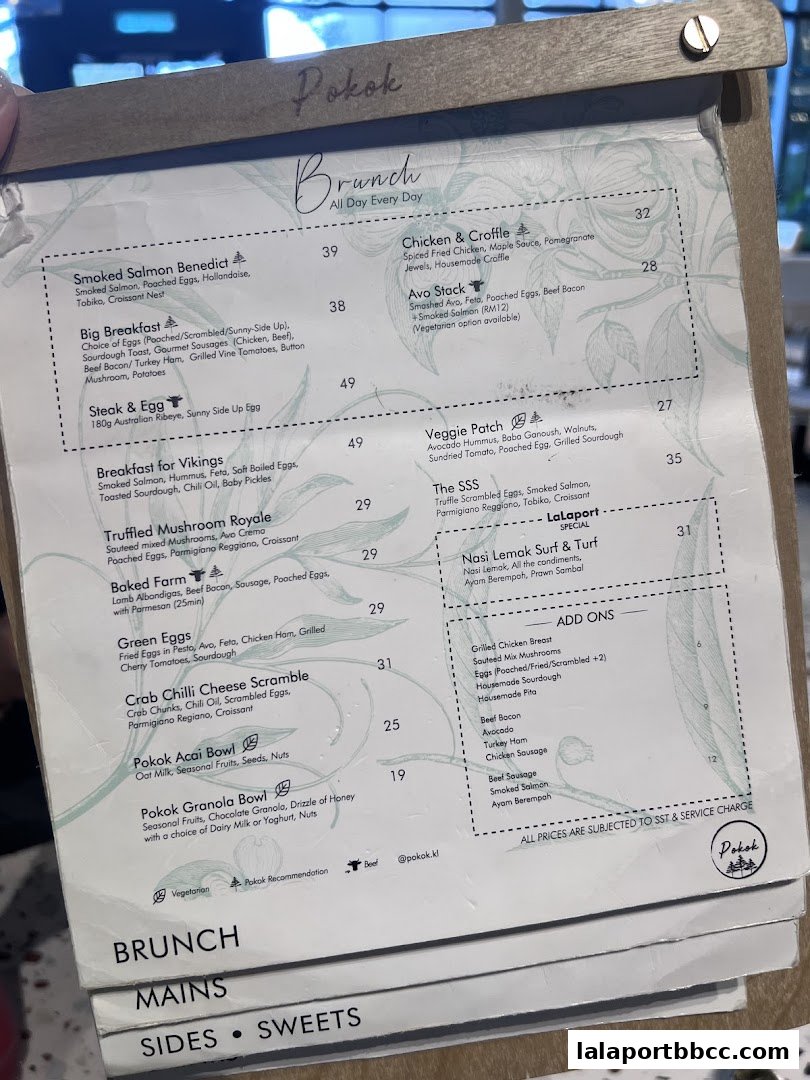 Pokok
Brunch
All Day Every Day
Smoked Salmon Benedict 39
Smoked Salmon, Poached Eggs, Hollandaise,
Tobiko, Croissant Nest
Big Breakfast 38
Choice of Eggs (Poached/Scrambled/Sunny-Side Up),
Sourdough Toast, Gourmet Sausages (Chicken, Beef),
Beef Bacon/ Turkey Ham, Grilled Vine Tomatoes, Button
Mushroom, Potatoes
Steak & Egg 49
180g Australian Ribeye, Sunny Side Up Egg
Breakfast for Vikings 49
Smoked Salmon, Hummus, Feta, Soft Boiled Eggs,
Toasted Sourdough, Chili Oil, Baby Pickles
Truffled Mushroom Royale 29
Sauteed mixed Mushrooms, Avo Crema
Poached Eggs, Parmigiano Reggiano, Croissant
Baked Farm 29
Lamb Albondigas, Beef Bacon, Sausage, Poached Eggs,
with Parmesan (25min)
Green Eggs 29
Fried Eggs in Pesto, Avo, Feta, Chicken Ham, Grilled
Cherry Tomatoes, Sourdough
Crab Chilli Cheese Scramble 31
Crab Chunks, Chili Oil, Scrambled Eggs,
Parmigiano Regiano, Croissant
Pokok Acai Bowl 25
Oat Milk, Seasonal Fruits, Seeds, Nuts
Pokok Granola Bowl 19
Seasonal Fruits, Chocolate Granola, Drizzle of Honey
with a choice of Dairy Milk or Yoghurt, Nuts
Chicken & Croffle 32
Spiced Fried Chicken, Maple Sauce, Pomegranate
Jewels, Housemade Croffle
Avo Stack 28
Smashed Avo, Feta, Poached Eggs, Beef Bacon
+Smoked Salmon (RM12)
(Vegetarian option available)
Veggie Patch 27
Avocado Hummus, Baba Ganoush, Walnuts,
Sundried Tomato, Poached Egg, Grilled Sourdough
The SSS 35
Truffle Scrambled Eggs, Smoked Salmon,
Parmigiano Reggiano, Tobiko, Croissant
LaLaport
SPECIAL
Nasi Lemak Surf & Turf 31
Nasi Lemak, All the condiments,
Ayam Berempah, Prawn Sambal
ADD ONS
Grilled Chicken Breast
Sauteed Mix Mushrooms 6
Eggs (Poached/Fried/Scrambled +2)
Housemade Sourdough
Housemade Pita
Beef Bacon 9
Avocado
Turkey Ham
Chicken Sausage
Beef Sausage 12
Smoked Salmon
Ayam Berempah
ALL PRICES ARE SUBJECTED TO SST & SERVICE CHARGE
Pokok
Vegetarian Pokok Recommendation Beef @pokok.kl
BRUNCH
MAINS
SIDES • SWEETS
lalaportbbcc.com